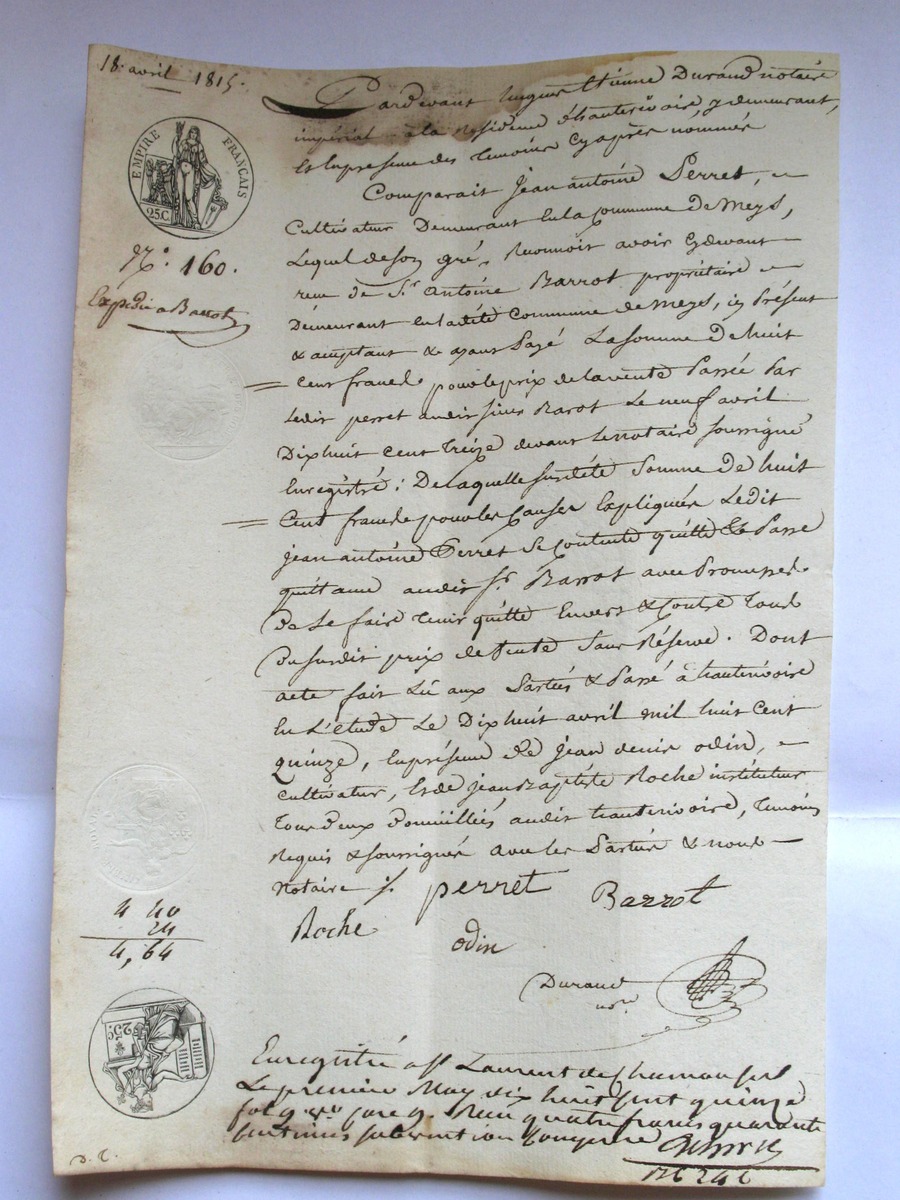 18. avril 1815.
EMPIRE FRANÇAIS
25.C
N.° 160.
Expédié a Barrot
Pardevant hugues Etienne Durand notaire
impérial à la Résidence d'hauterivoire, y demeurant,
Et En presence des temoins Cy après nommés
Comparait Jean antoine Perret,
Cultivateur Demeurant En la Commune de Meys,
Lequel de son gré, Reconnoit avoir Cy devant
reçu de Sr. Antoine Barrot propriétaire
Demeurant en la dite Commune de meys, icy Présent
& acceptant & ayant Payé La somme de huit
Cent francs pour le prix de la vente Passée Par
Ledit perret audit sieur Barot Le neuf avril
Dix huit cent treize devant le notaire soussigné
Enregistré; De laquelle susdite Somme de huit
Cent francs pour les Causes Expliquées Ledit
jean antoine Perret Se Contente quitte & Passe
quittance audit Sr. Barrot avec Promesse
de Le faire tenir quitte Envers & Contre Tous
du susdit prix de Vente Sans Réserve. Dont
acte fait Lû aux Parties & Passé à hauterivoire
En L'étude Le Dix huit avril mil huit cent
quinze, En présence de jean denis odin,
Cultivateur, Et de jean Baptiste Roche instituteur
Tous deux domiciliés audit hauterivoire, Temoins
Requis & soussignés avec les Parties & nous
notaire ./.
perret
Barrot
Roche
odin
Durand
nre
4 40
24
4,64
25.c
Enregistré a St Laurent de Chamousset
Le premier May dix huit cent quinze
fol 9 vo case 9. Reçu quatre francs quarante
centimes subvention comprise
D. C.